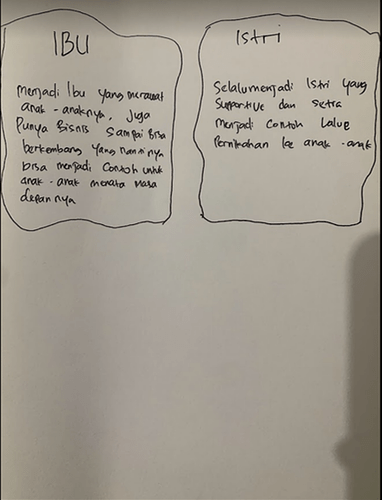 IBU
menjadi Ibu yang merawat
anak - anaknya, Juga
Punya Bisnis Sampai Bisa
berkembang yang nantinya
bisa menjadi Contoh untuk
anak - anak menata masa
depannya
Istri
Selalu menjadi Istri yang
Supportive dan setra
menjadi Contoh Value
Pernikahan ke anak - anak